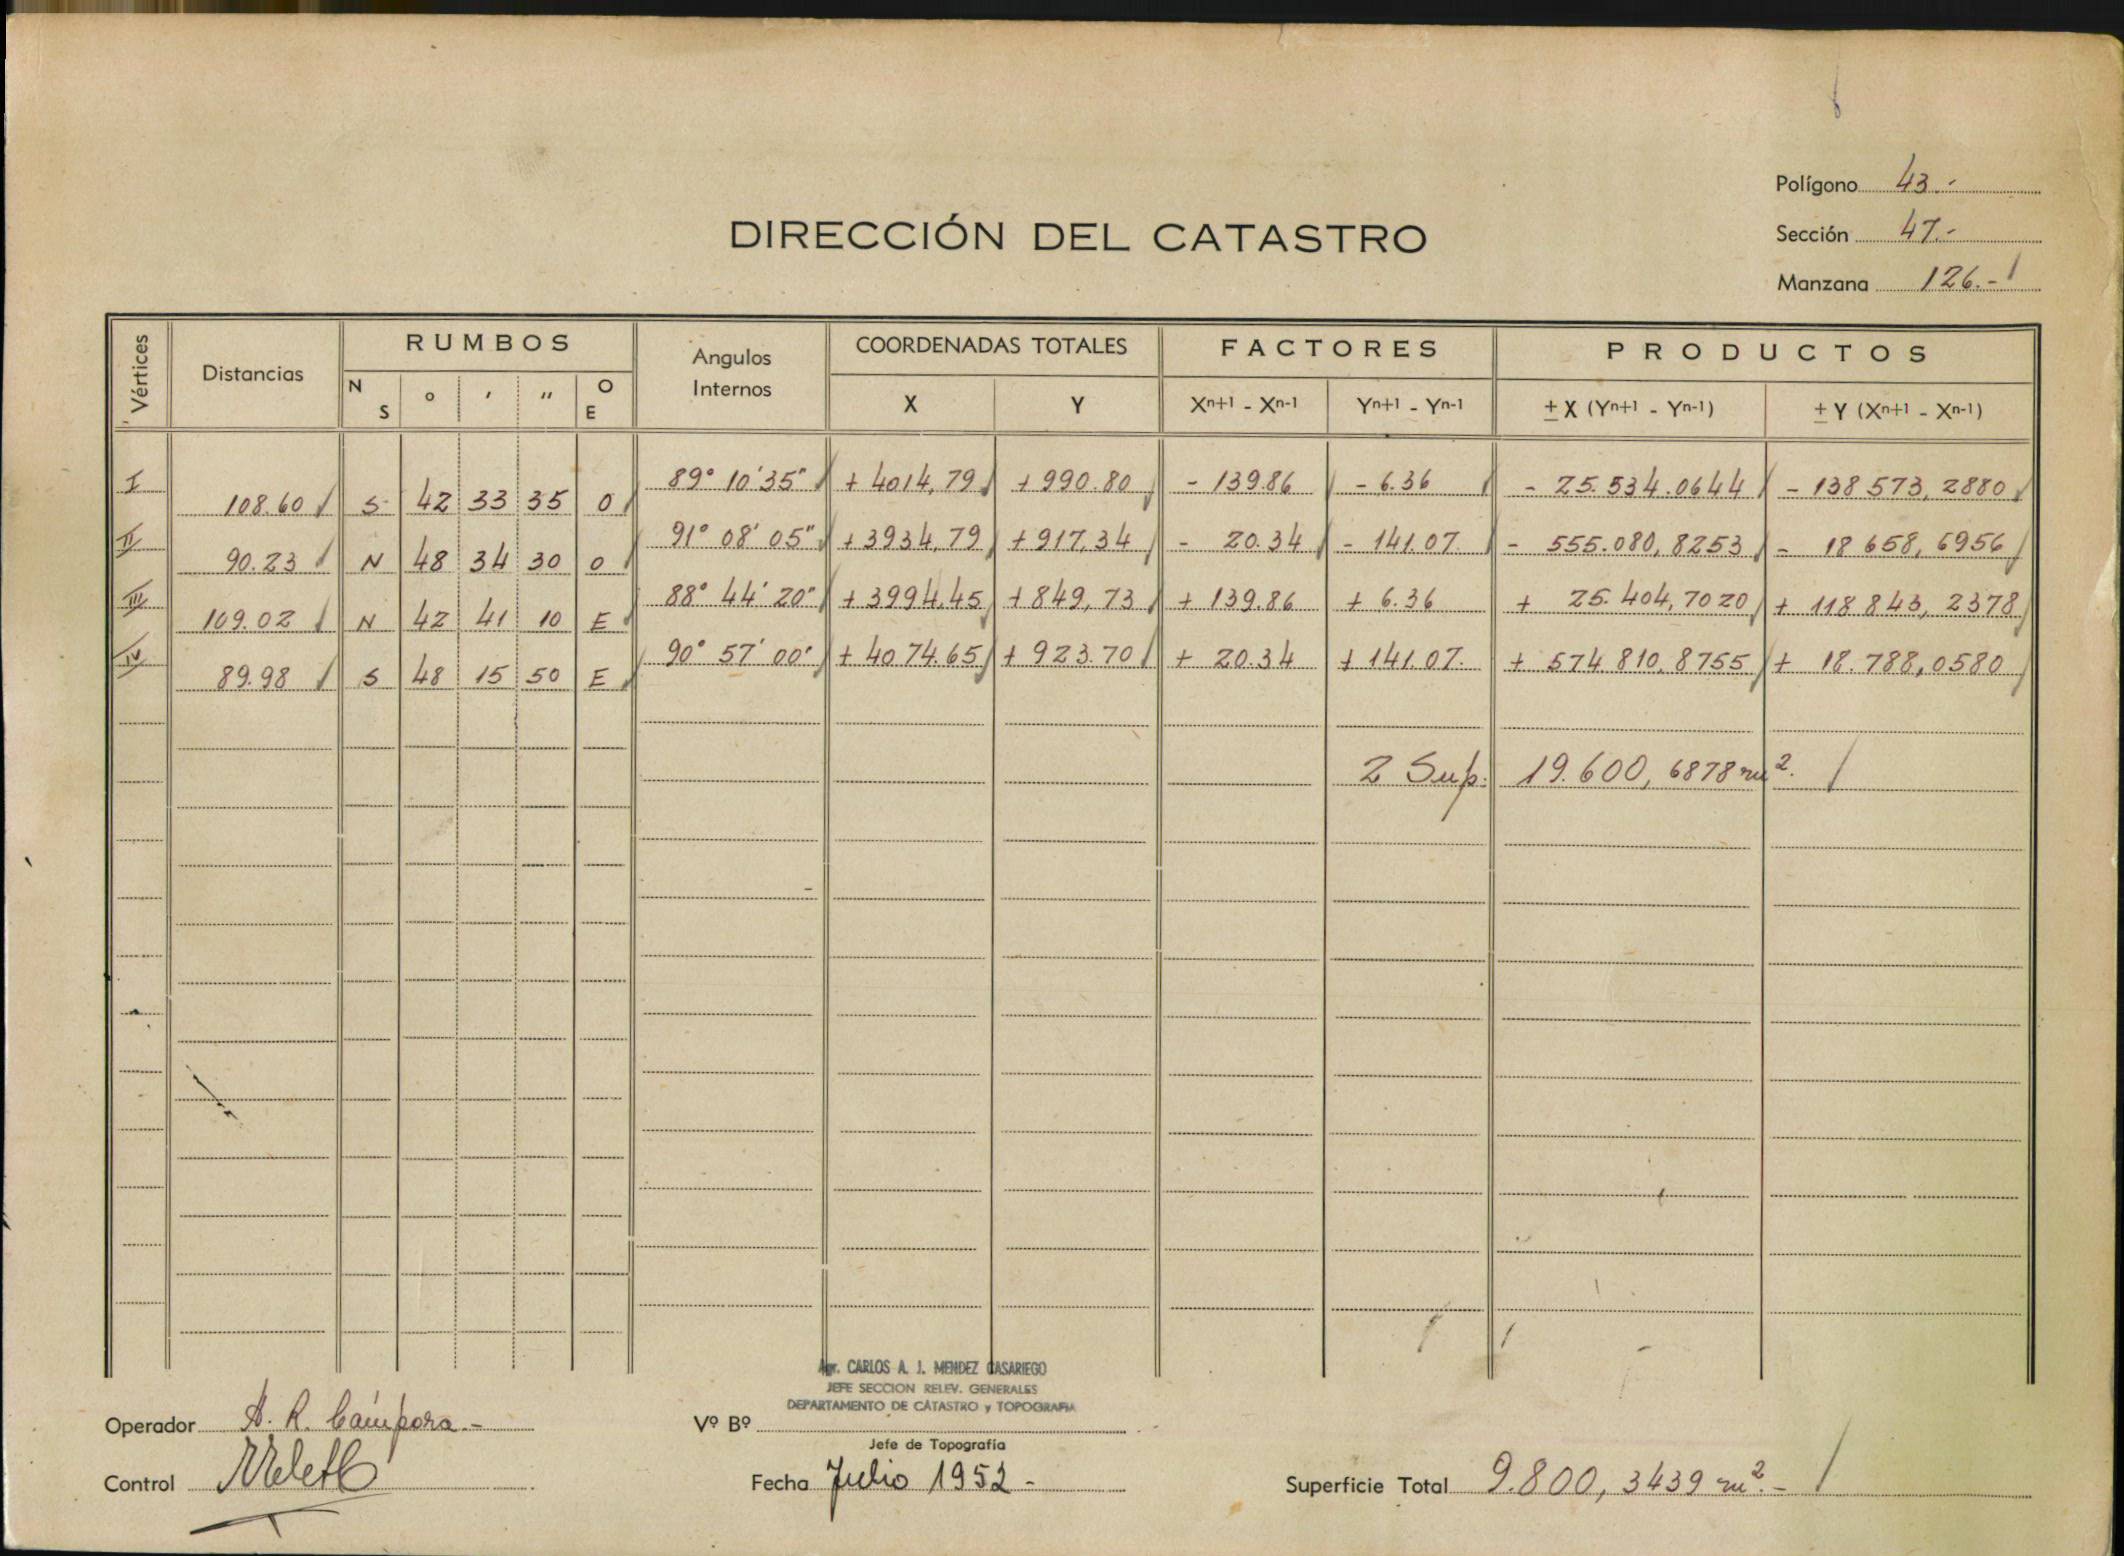 Polígono 43.-
DIRECCIÓN DEL CATASTRO
Sección 47.-
Manzana 126.-
Vértices Distancias RUMBOS Angulos Internos COORDENADAS TOTALES FACTORES PRODUCTOS
N S ° ′ ″ O E X Y Xn+1 - Xn-1 Yn+1 - Yn-1 ± X (Yn+1 - Yn-1) ± Y (Xn+1 - Xn-1)
I 89° 10' 35" + 4014,79 + 990.80 - 139.86 - 6.36 - 25.534.0644 - 138 573, 2880
108.60 S 42 33 35 O
II 91° 08' 05" + 3934,79 + 917,34 - 20.34 - 141.07 - 555.080,8253 - 18 658, 6956
90.23 N 48 34 30 O
III 88° 44' 20" + 3994.45 + 849,73 + 139.86 + 6.36 + 25.404,7020 + 118 843, 2378
109.02 N 42 41 10 E
IV 90° 57' 00" + 4074.65 + 923.70 + 20.34 + 141.07. + 574 810,8755 + 18.788,0580
89.98 S 48 15 50 E
2 Sup: 19.600, 6878 m².
Agr. CARLOS A. J. MENDEZ CASARIEGO
JEFE SECCION RELEV. GENERALES
DEPARTAMENTO DE CATASTRO y TOPOGRAFIA
Operador A. R. Cámpora.-
Vº Bº
Jefe de Topografía
Control
Fecha Julio 1952-
Superficie Total 9.800, 3439 m².-